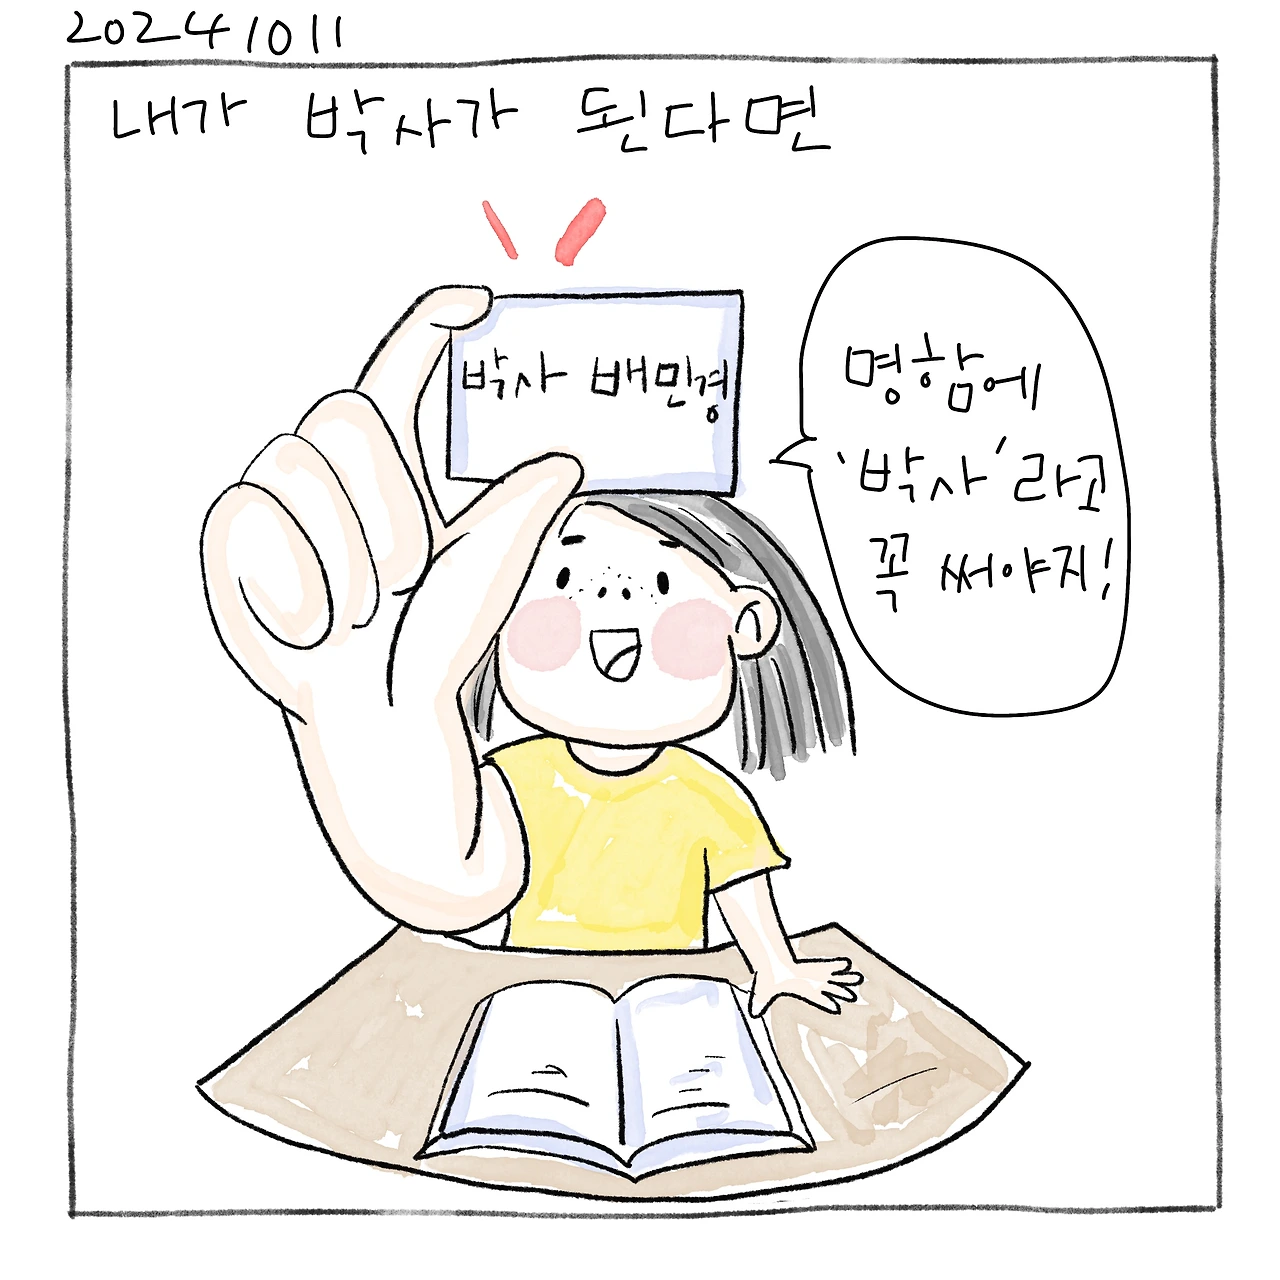 20241011
내가 박사가 된다면
박사 배민경
명함에
'박사'라고
꼭 써야지!